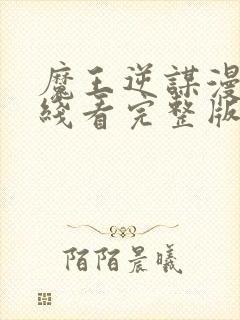 魔王逆謀漫
綫看完整版
陌陌晨曦